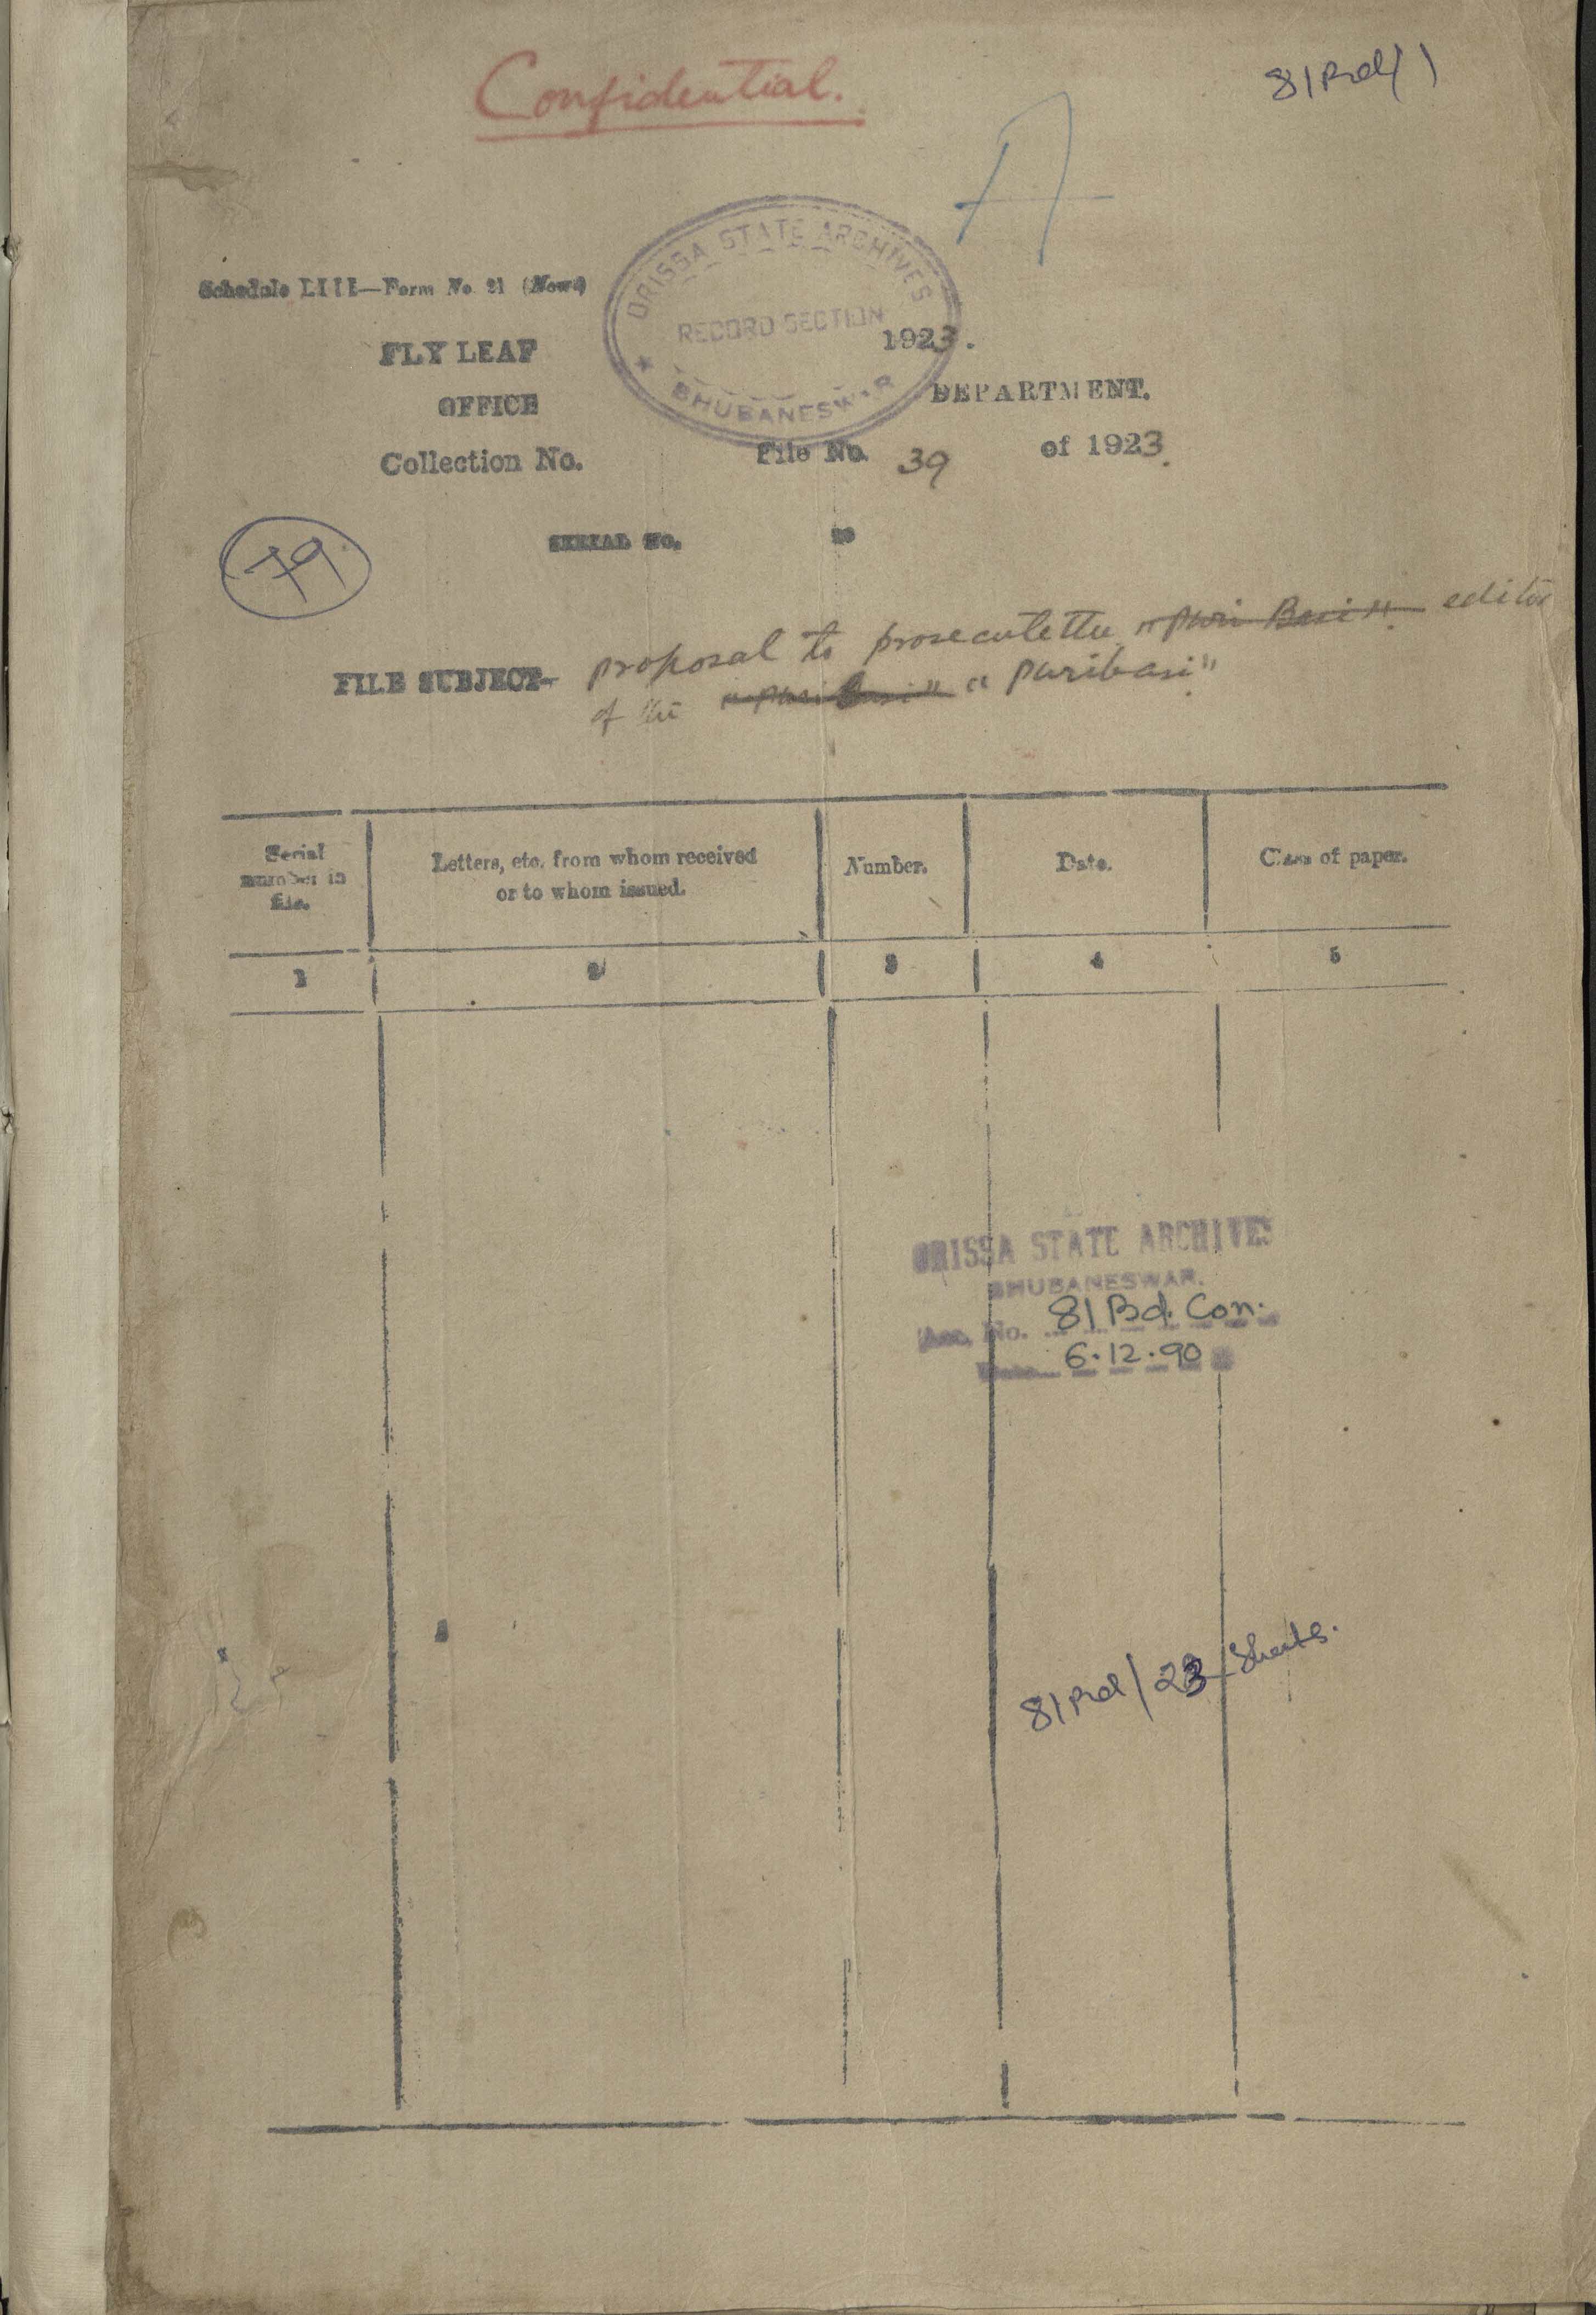 Confidential.
81Bd/1
A
ORISSA STATE ARCHIVES
RECORD SECTION
BHUBANESWAR
Schedule LIII—Form No 21 (New)
FLY LEAF
1923.
OFFICE DEPARTMENT.
Collection No. File No. 39 of 1923.
79
SERIAL No. to
FILE SUBJECT- proposal to prosecute the "Puri Basi" editor
of the "puri Basi" "Puribasi"
Serial number in file. Letters, etc. from whom received or to whom issued. Number. Date. Class of paper.
1 2 3 4 5
ORISSA STATE ARCHIVES
BHUBANESWAR.
Acc. No. 81 Bd. Con.
Date 6.12.90
81Bd/23 Sheets.